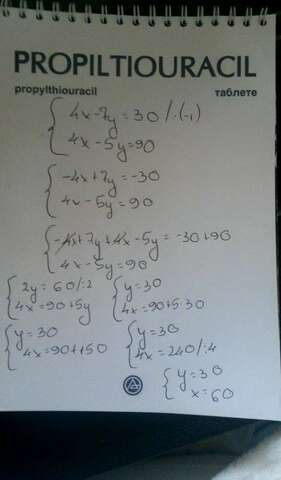 PROPILTIOURACIL
propylthiouracil таблете
{ 4x-7y=30 /·(-1)
4x-5y=90
{ -4x+7y=-30
4x-5y=90
{ -4x+7y+4x-5y=-30+90
4x-5y=90
{ 2y=60/:2
4x=90+5y
{ y=30
4x=90+5·30
{ y=30
4x=90+150
{ y=30
4x=240/:4
{ y=30
x=60